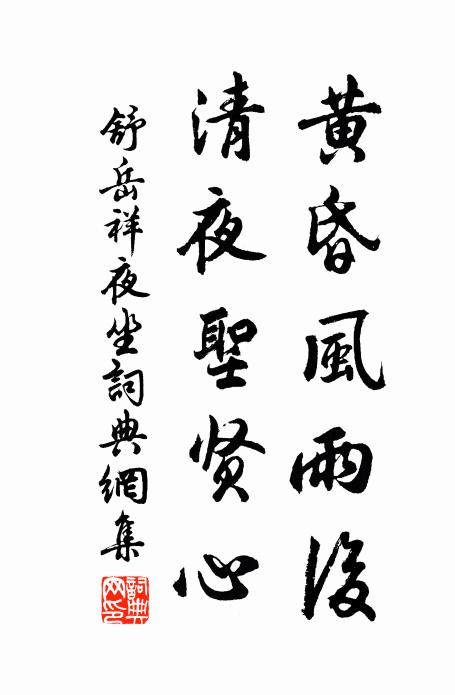 黃昏風雨後
清夜聖贤心
舒岳祥夜坐詞典網集
詞典網印